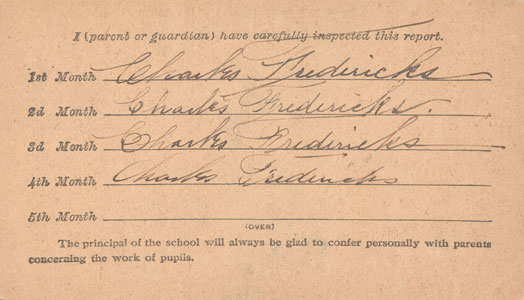 I (parent or guardian) have carefully inspected this report.
1st Month Charles Fredericks
2d Month Charles Fredericks.
3d Month Charles Fredericks
4th Month Charles Fredericks
5th Month
(OVER)
The principal of the school will always be glad to confer personally with parents
concerning the work of pupils.